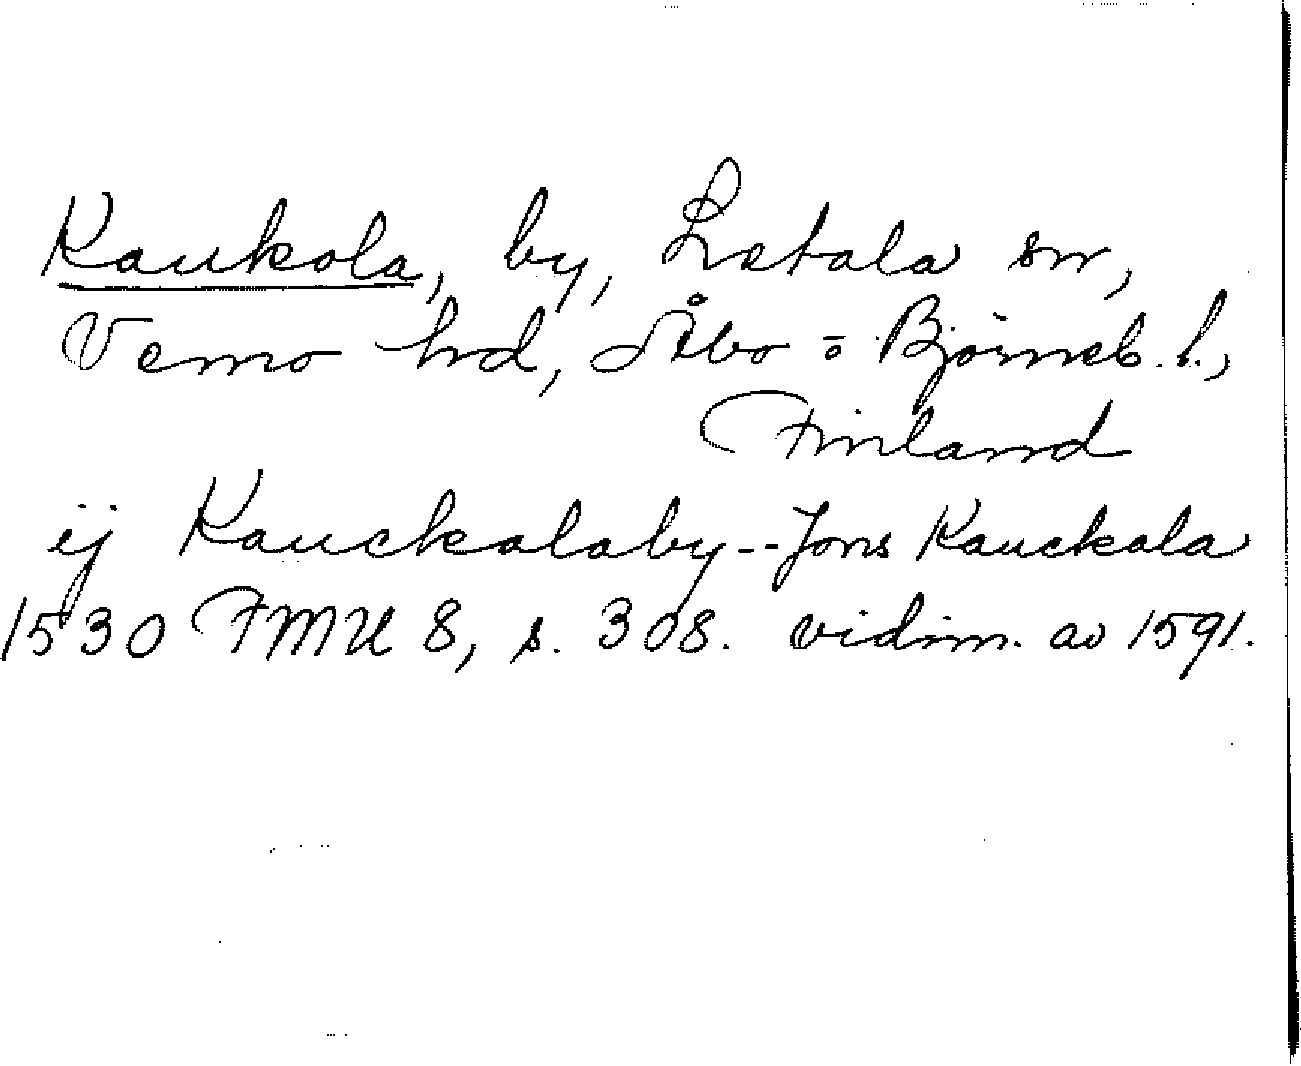 Kaukola, by, Letala sn,
Vemo hd, Åbo o Björneb. l.,
Finland
ij Kauckalaby -- Jons Kauckala
1530 FMU 8, s. 308. vidim. av 1591.